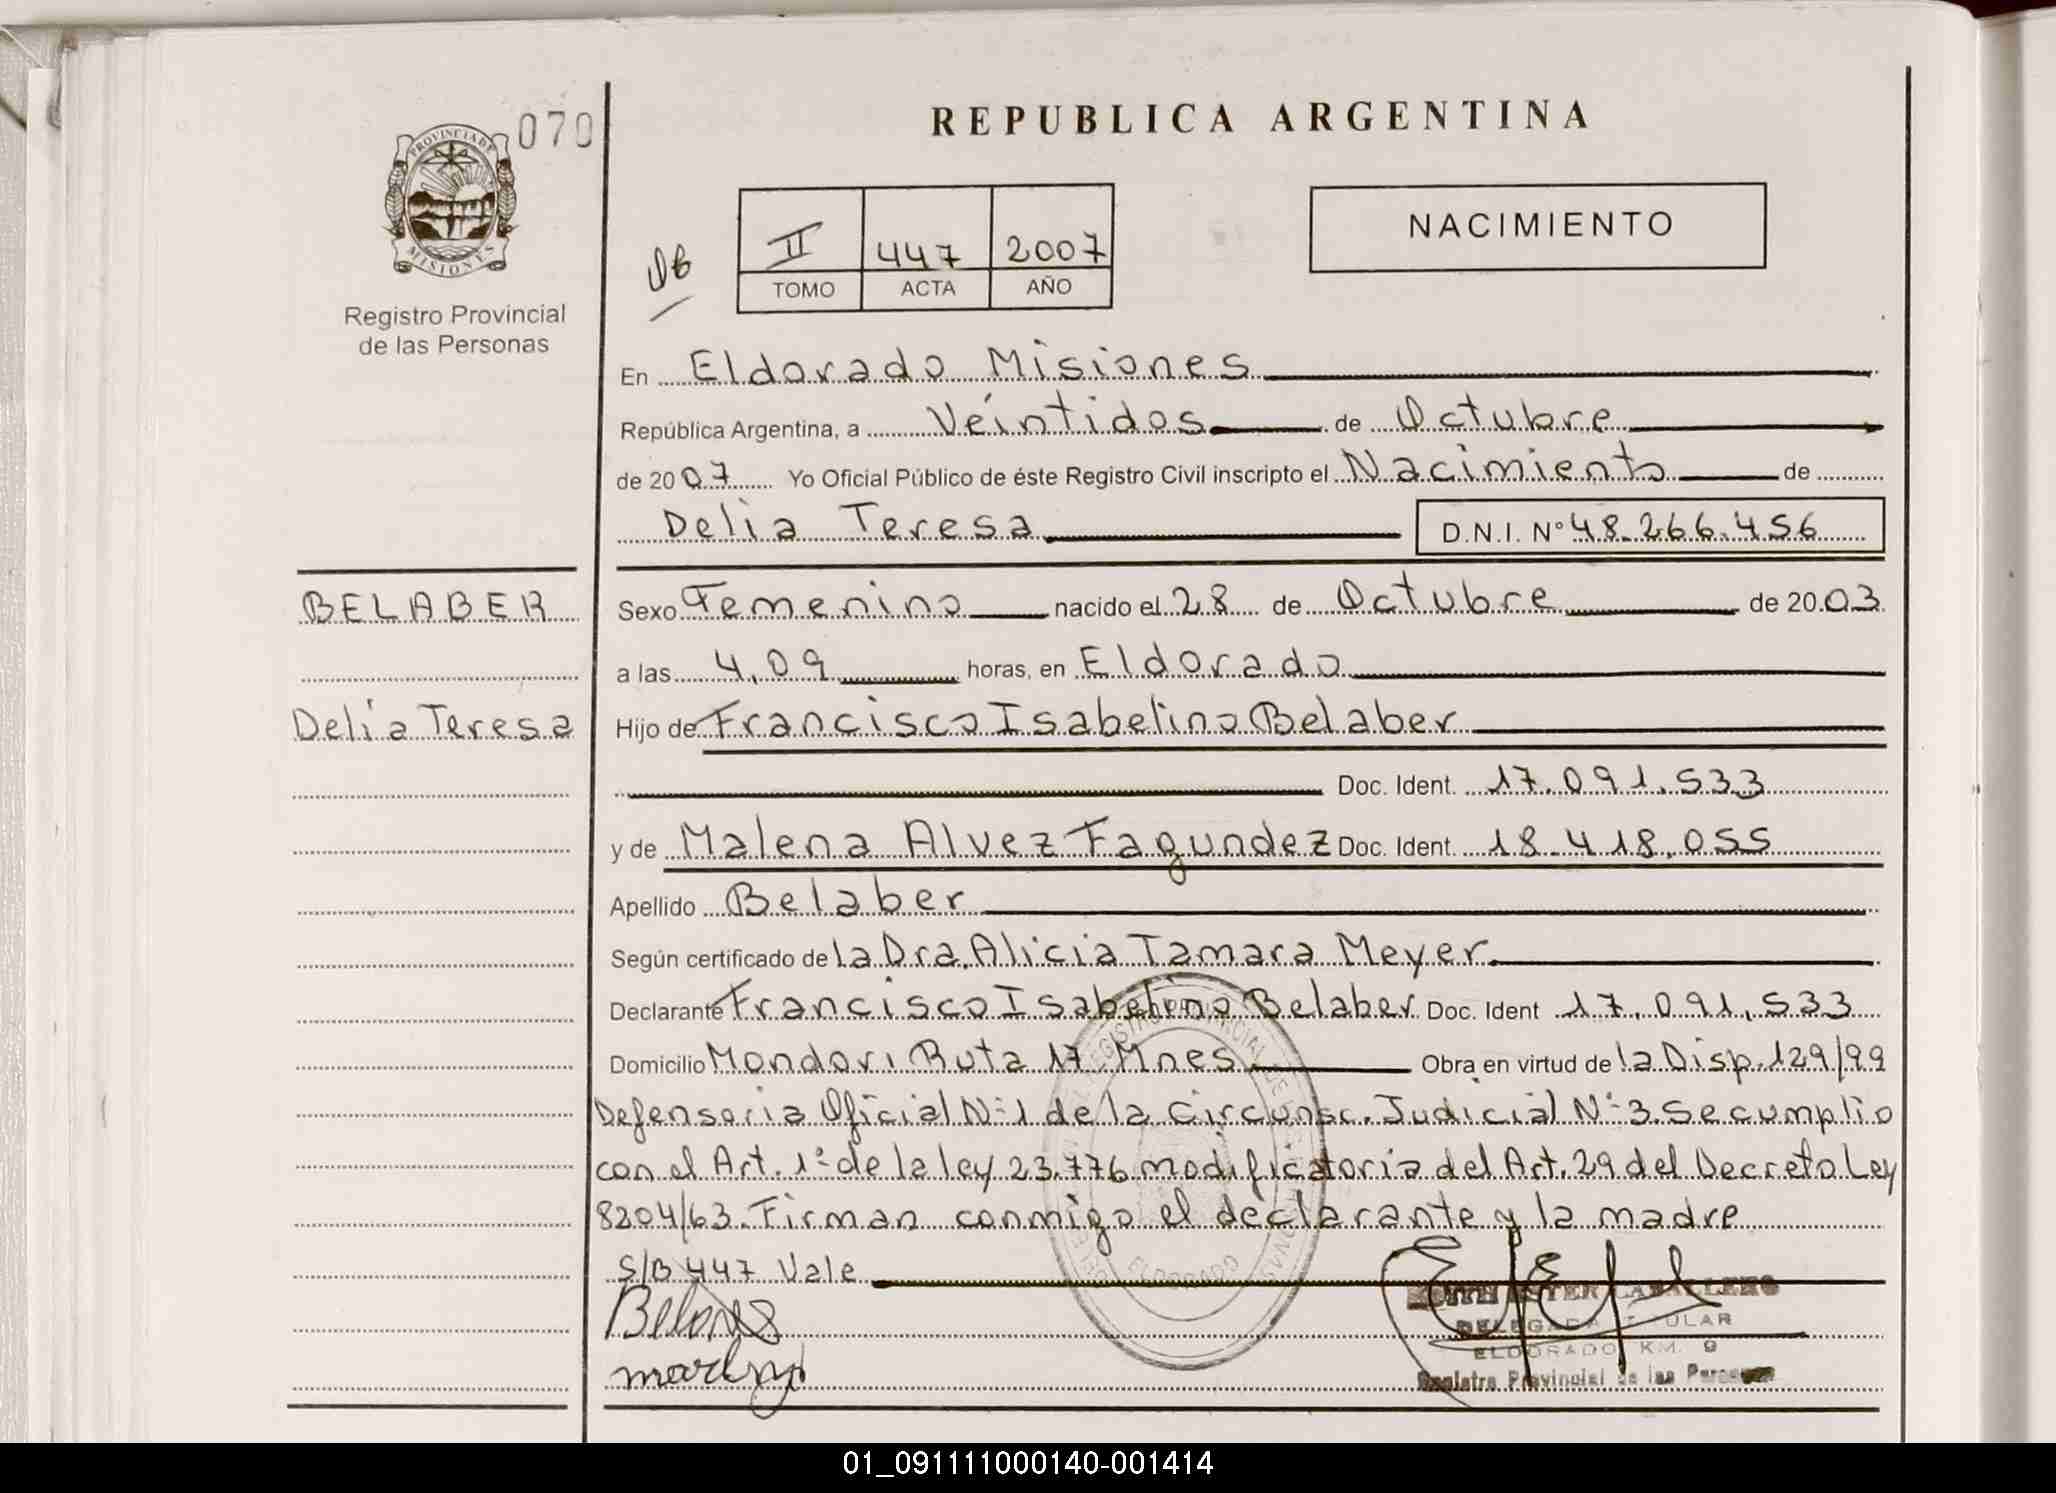 070
PROVINCIA DE
MISIONES
Registro Provincial
de las Personas
REPUBLICA ARGENTINA
II 447 2007
TOMO ACTA AÑO
NACIMIENTO
En Eldorado Misiones
República Argentina, a Veintidos de Octubre
de 2007 Yo Oficial Público de éste Registro Civil inscripto el Nacimiento de
Delia Teresa D.N.I. Nº 48.266.456
BELABER
Sexo Femenino nacido el 28 de Octubre de 2003
a las 4,09 horas, en Eldorado
Delia Teresa
Hijo de Francisco Isabelino Belaber
Doc. Ident. 17.091.533
y de Malena Alvez Fagundez Doc. Ident. 18.418.055
Apellido Belaber
Según certificado de la Dra. Alicia Tamara Meyer
Declarante Francisco Isabelino Belaber Doc. Ident 17.091.533
Domicilio Mondori Ruta 17 Mnes Obra en virtud de la Disp. 129/99
Defensoria Oficial Nº 1 de la Circunsc. Judicial Nº 3. Se cumplio
con el Art. 1º de la ley 23.776 modificatoria del Art. 29 del Decreto Ley
8204/63. Firman conmigo el declarante y la madre
S/B 447 Vale
CABALLERO
DELEGADA TITULAR
ELDORADO KM. 9
Registro Provincial de las Personas
ELDORADO
01_091111000140-001414